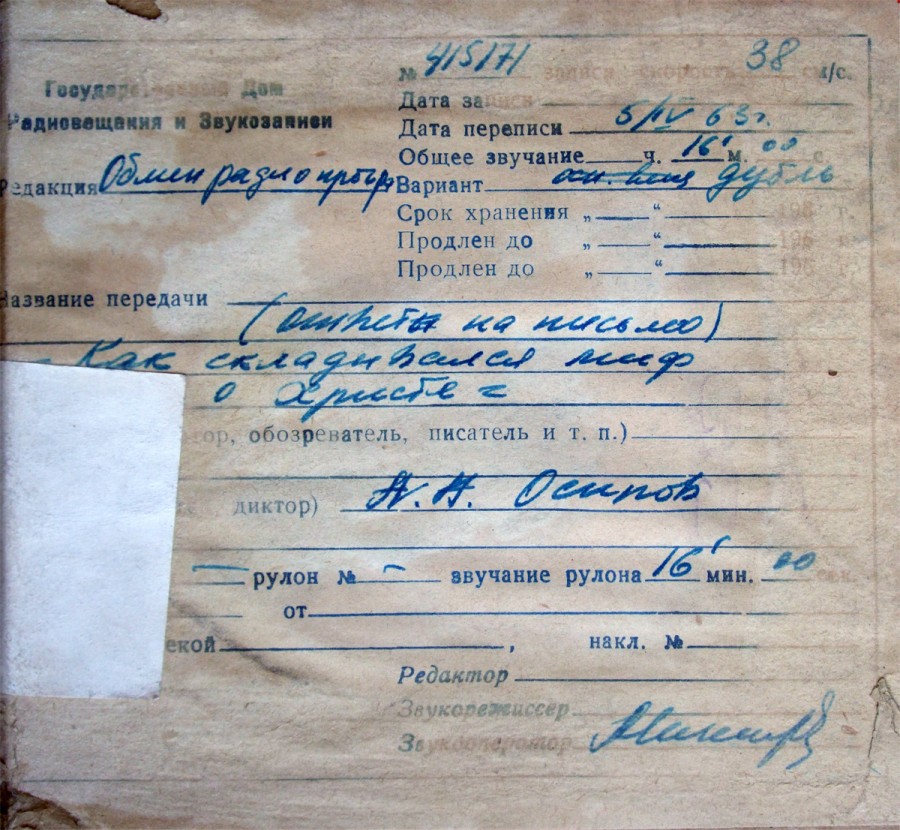 № 415171 записи скорость 38 см/с.
Государственный Дом
Радиовещания и Звукозаписи
Дата записи
Дата переписи 5/IV 63 г.
Общее звучание ч. 16' м. 00 с.
Редакция Обмен радиопрогр
Вариант дубль
Срок хранения „ “ 196 г.
Продлен до „ “ 196 г.
Продлен до „ “ 196 г.
Название передачи
(ответы на письмо)
- Как складывался миф
о Христе =
тор, обозреватель, писатель и т. п.)
диктор) А. А. Осипов
рулон № - звучание рулона 16' мин. 00 сек.
от
екой , накл. №
Редактор
Звукорежиссер
Звукооператор